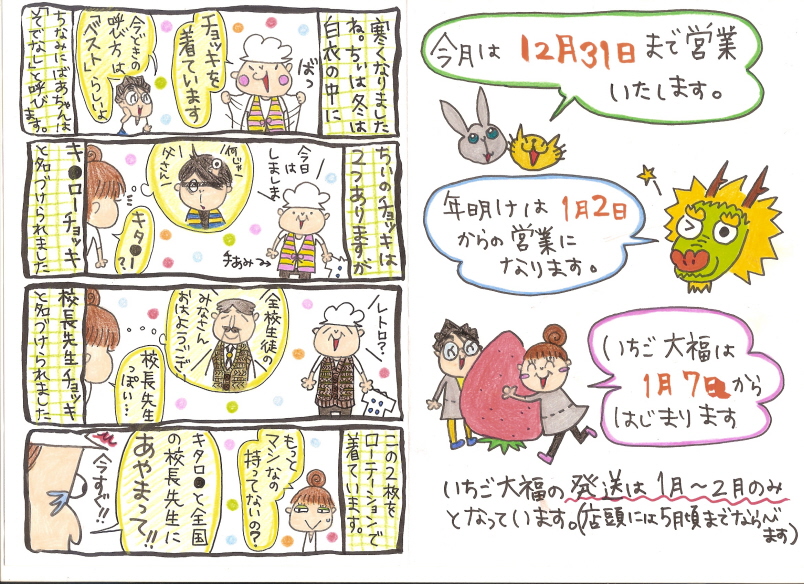 寒くなりました
ね。ちぃは冬は
白衣の中に
ばっ
チョッキを
着ています
今どきの
呼び方は
「ベスト」らしいよ
ちなみにばあちゃんは
「そでなし」と呼びます。
ちぃのチョッキは
2つありますが
今日は
しましま
手あみ
何じゃ
父さん
キタ●ー
?!
キ●ローチョッキ
と名づけられました
レトロ?
全校生徒の
みなさん
おはようござい
校長先生
っぽい…
校長先生チョッキ
と名づけられました
この2枚を
ローテーションで
着ています。
もっと
マシなの
持ってないの?
キタロ●と全国
の校長先生に
あやまって!!
今すぐ!!
今月は12月31日まで営業
いたします。
年明けは1月2日
からの営業に
なります。
いちご大福は
1月7日から
はじまります
いちご大福の発送は1月〜2月のみ
となっています。(店頭には5月頃までならべ
ます)